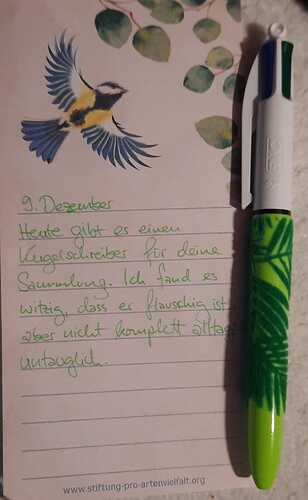 9. Dezember
Heute gibt es einen
Kugelschreiber für deine
Sammlung. Ich fand es
witzig, dass er flauschig ist
aber nicht komplett alltags
untauglich.
www.stiftung-pro-artenvielfalt.org